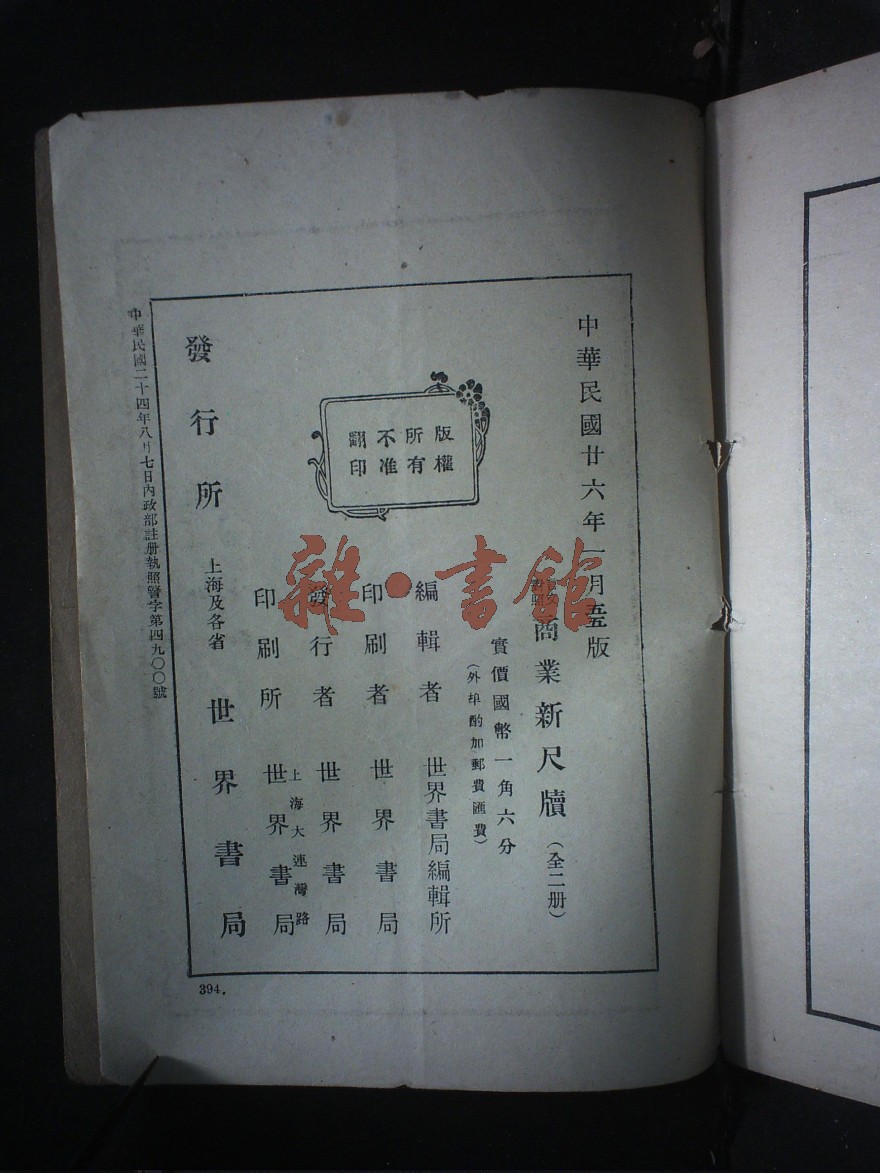 中華民國廿六年一月五版
商業新尺牘（全二册）
實價國幣一角六分
（外埠酌加郵費匯費）
編輯者 世界書局編輯所
印刷者 世界書局
發行者 世界書局
上海大連灣路
印刷所 世界書局
版權
所有
不准
翻印
發行所 上海及各省 世界書局
中華民國二十四年八月七日內政部註册執照警字第四九〇〇號
394.
雜·書館